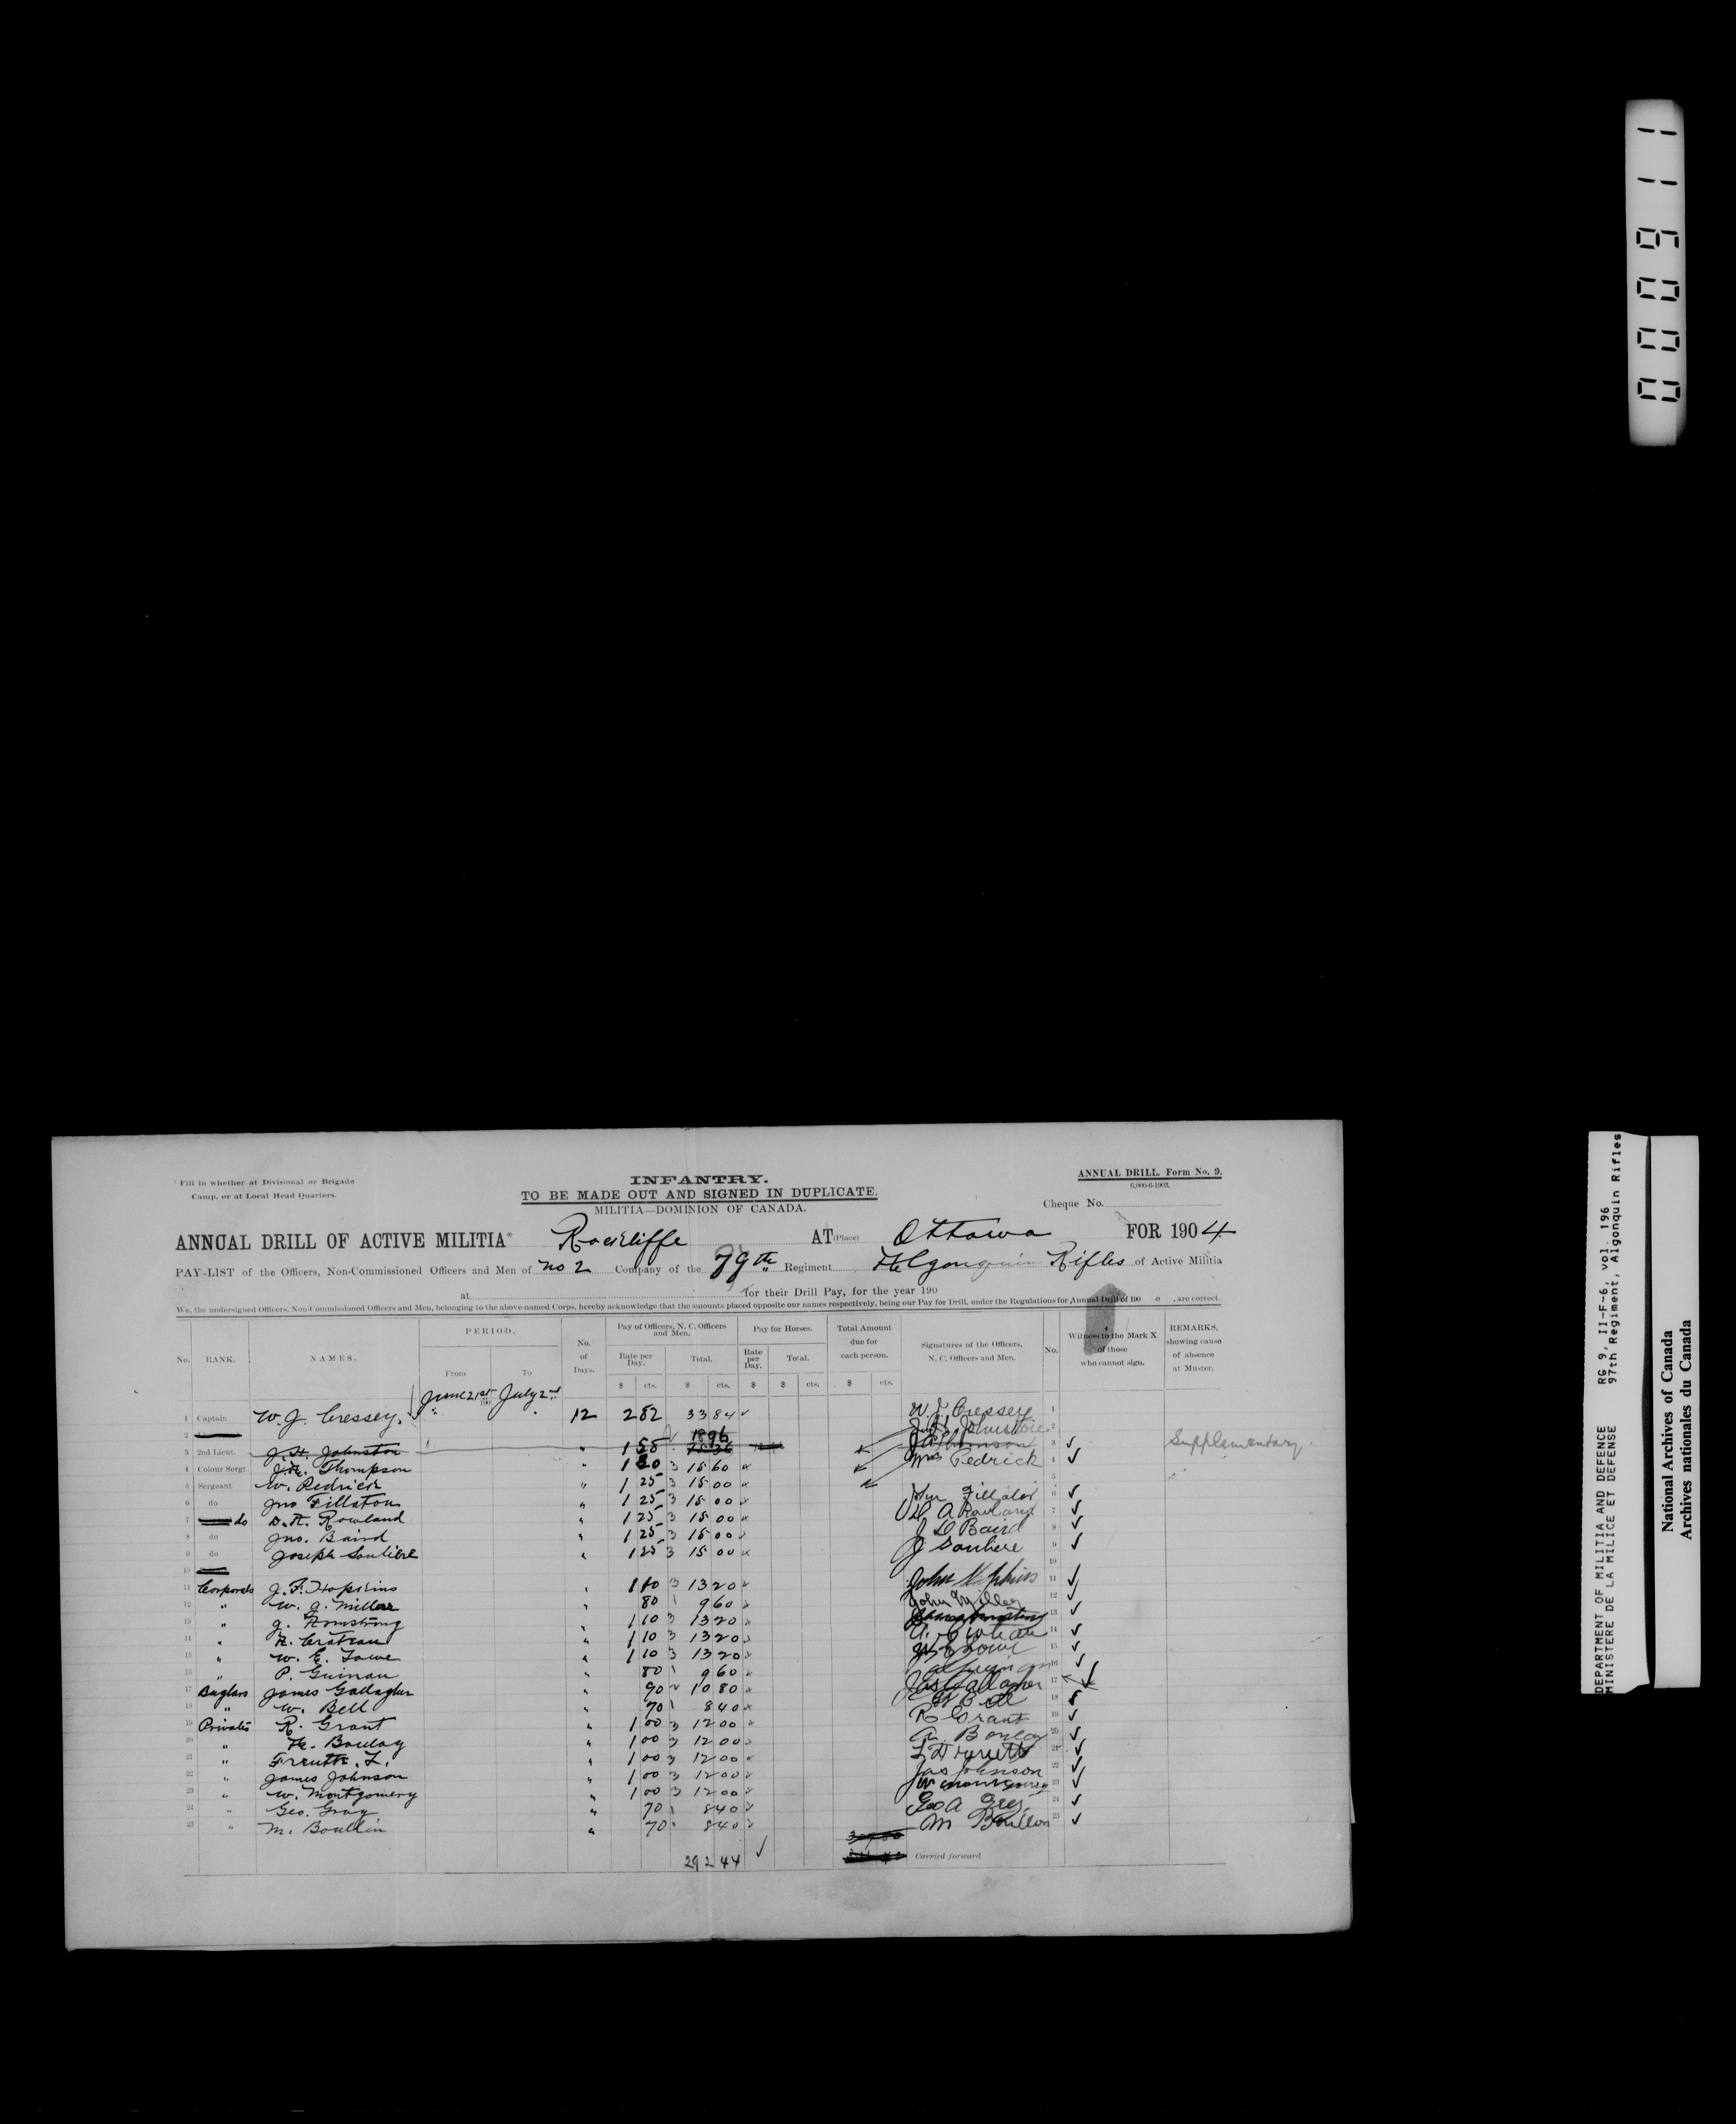 000911
* Fill in whether at Divisional or Brigade
Camp, or at Local Head Quarters.
INFANTRY.
TO BE MADE OUT AND SIGNED IN DUPLICATE.
MILITIA—DOMINION OF CANADA.
ANNUAL DRILL. Form No. 9.
6,000-6-1903.
Cheque No.
ANNUAL DRILL OF ACTIVE MILITIA* Rockliffe AT (Place) Ottawa FOR 1904
PAY-LIST of the Officers, Non-Commissioned Officers and Men of no 2 Company of the 79th Regiment Algonquin Rifles of Active Militia
at for their Drill Pay, for the year 190
We, the undersigned Officers, Non-Commissioned Officers and Men, belonging to the above-named Corps, hereby acknowledge that the amounts placed opposite our names respectively, being our Pay for Drill, under the Regulations for Annual Drill of 190 -0 , are correct.
No. RANK. NAMES. PERIOD. From To No. of Days. Pay of Officers, N. C. Officers and Men. Rate per Day. Total. Pay for Horses. Rate per Day. Total. Total Amount due for each person. Signatures of the Officers, N. C. Officers and Men. No. Witness to the Mark X of those who cannot sign. REMARKS, showing cause of absence at Muster.
$ cts. $ cts. $ $ cts. $ cts.
June 21st July 2nd
190
1 Captain W. J. Cressey. 12 2 82 33 84 W J Cressey 1
2 18 96 2
3 2nd Lieut. J. H. Johnston " 1 58 J A Thomson 3 Supplementary.
4 Colour Sergt J. A. Thompson 1 30 3 15 60 Wm Pedrick 4
5 Sergeant W. Pedrick " 1 25 3 15 00 5
6 do Jno Fillator " 1 25 3 15 00 Jno Fillator 6
7 do D. A. Rowland " 1 25 3 15 00 D A Rowland 7
8 do Jno. Baird " 1 25 3 15 00 J D Baird 8
9 do Joseph Souliere " 1 25 3 15 00 J Souliere 9
10 10
11 Corporals J. F. Hopkins " 1 10 3 13 20 John Hopkins 11
12 " W. J. Millar " 80 1 9 60 John Miller 12
13 " J. Armstrong " 1 10 3 13 20 James Armstrong 13
14 " A. Croteau " 1 10 3 13 20 14
15 " W. E. Lowe " 1 10 3 13 20 W E Lowe 15
16 " P. Guinan " 80 1 9 60 16
17 Buglers James Gallagher " 90 2 10 80 Jas Gallagher 17
18 " W. Bell " 70 1 8 40 W Bell 18
19 Privates R. Grant " 1 00 3 12 00 R Grant 19
20 " A. Boulay " 1 00 3 12 00 A. Boulay 20
21 " Freuth. L. " 1 00 3 12 00 21
22 " James Johnson " 1 00 3 12 00 Jas Johnson 22
23 " W. Montgomery " 1 00 3 12 00 W Montgomery 23
24 " Geo. Gray " 70 1 8 40 Geo A Grey 24
25 " M. Boullin " 70 1 8 40 M Boullon 25
292 44 Carried forward
DEPARTMENT OF MILITIA AND DEFENCE RG 9, II-F-6, vol. 196
MINISTERE DE LA MILICE ET DEFENSE 97th Regiment, Algonquin Rifles
National Archives of Canada
Archives nationales du Canada